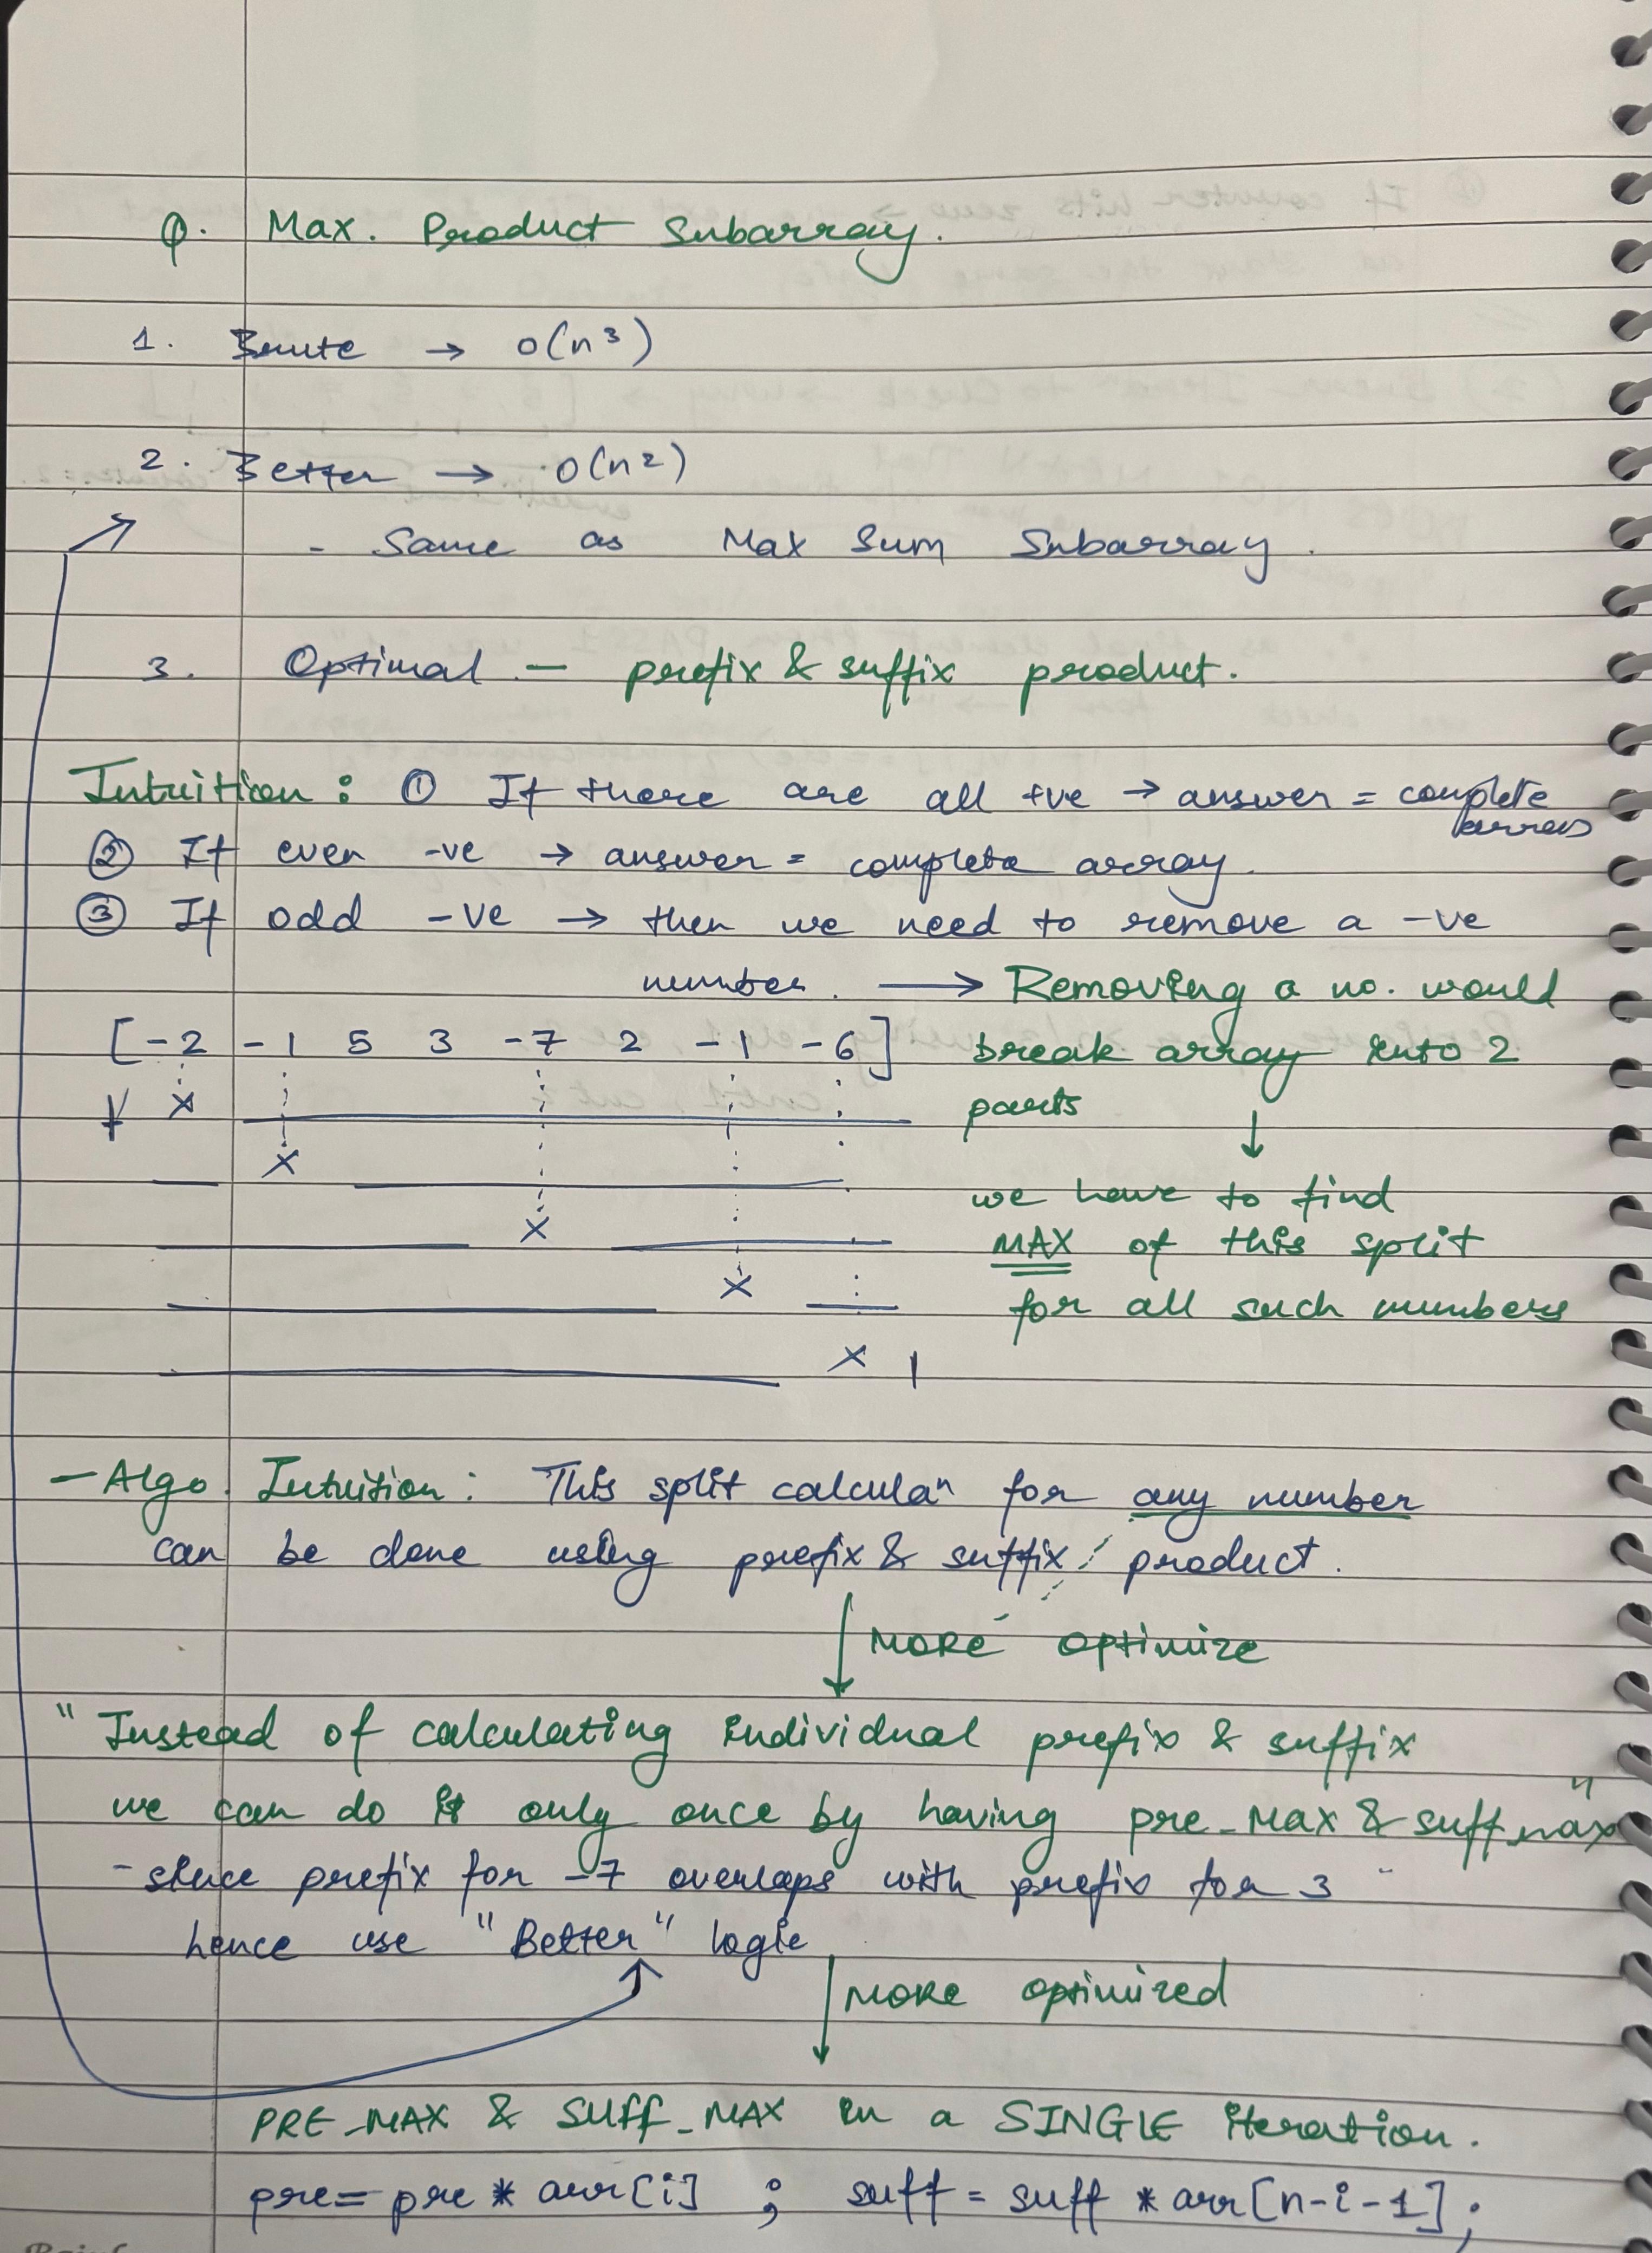 Q. Max. Product Subarray.
1. Brute → O(n³)
2. Better → O(n²)
- Same as Max Sum Subarray.
3. Optimal - prefix & suffix product.
Intuition: ① If there are all +ve → answer = complete
② If even -ve → answer = complete array.
③ If odd -ve → then we need to remove a -ve
number. → Removing a no. would
[-2 -1 5 3 -7 2 -1 -6] break array into 2
parts
↓
we have to find
MAX of this split
for all such numbers
- Algo Intuition: This split calculaⁿ for any number
can be done using prefix & suffix product.
↓ MORE optimize
"Instead of calculating individual prefix & suffix
we can do it only once by having pre_MAX & suff_max"
- since prefix for -7 overlaps with prefix for 3
hence use "Better" logic
↓ MORE optimized
PRE_MAX & SUFF_MAX in a SINGLE iteration.
pre = pre * arr[i] ; suff = suff * arr[n-i-1];